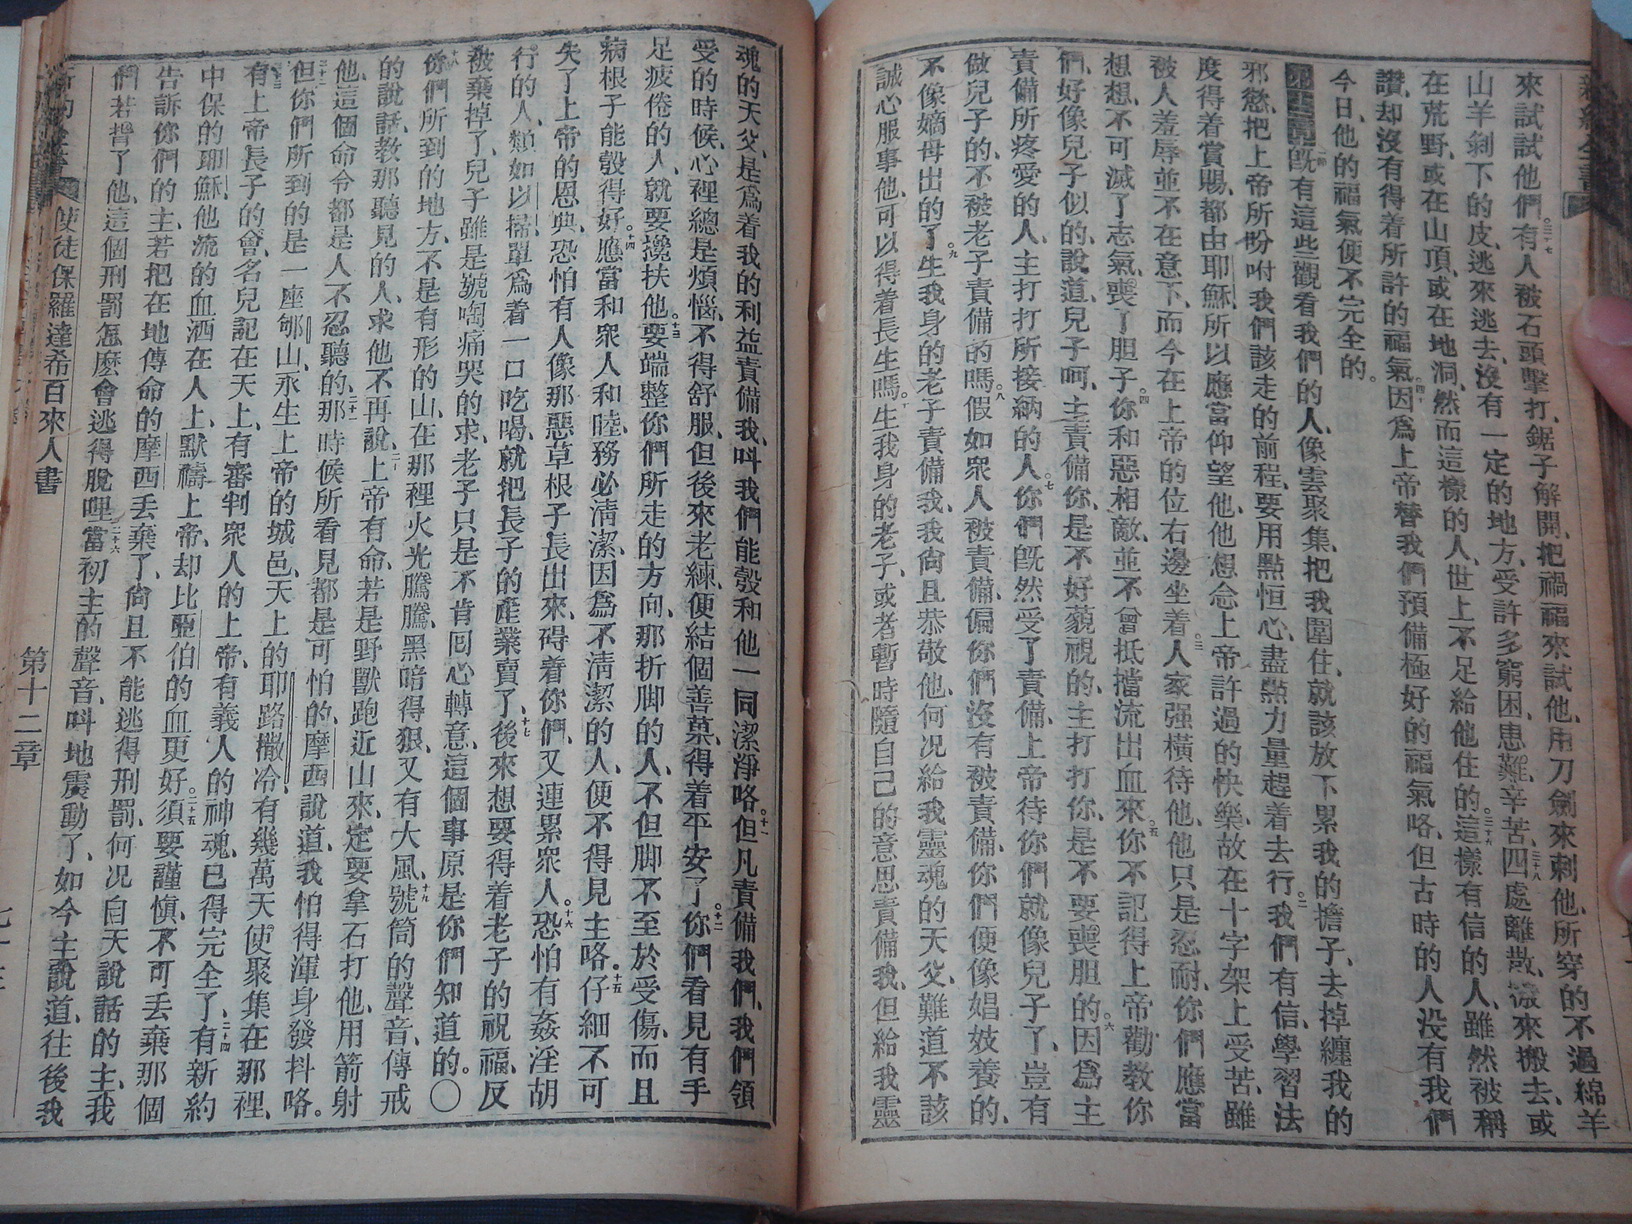 新約全書
來試試他們。三十七有人被石頭擊打、鋸子解開、把禍福來試他、用刀劍來刺他、所穿的不過綿羊
山羊剝下的皮、逃來逃去、沒有一定的地方、受許多窮困、患難、辛苦、三十八四處離散、搬來搬去、或
在荒野、或在山頂、或在地洞、然而這樣的人、世上不足給他住的。三十九這樣有信的人、雖然被稱
讚、却沒有得着所許的福氣、四十因爲上帝替我們預備極好的福氣咯、但古時的人沒有我們
今日、他的福氣便不完全的。
一節旣有這些觀看我們的人、像雲聚集、把我圍住、就該放下累我的擔子、去掉纏我的
邪慾、把上帝所吩咐我們該走的前程、要用點恒心、盡點力量趕着去行。二我們有信、學習法
度得着賞賜、都由耶穌、所以應當仰望他、他想念上帝許過的快樂、故在十字架上受苦、雖
被人羞辱並不在意下、而今在上帝的位右邊坐着。三人家强橫待他、他只是忍耐、你們應當
想想、不可滅了志氣、喪了胆子。四你和惡相敵、並不曾抵擋流出血來。五你不記得上帝勸教你
們、好像兒子似的、說道、兒子呵、主責備你、是不好藐視的、主打打你、是不要喪胆的。六因爲主
責備所疼愛的人、主打打所接納的人。七你們旣然受了責備、上帝待你們就像兒子了、豈有
做兒子的、不被老子責備的嗎。八假如衆人被責備、偏你們沒有被責備、你們便像娼妓養的、
不像嫡母出的了。九生我身的老子責備我、我尙且恭敬他、何况給我靈魂的天父、難道不該
誠心服事他、可以得着長生嗎。十生我身的老子、或者暫時隨自己的意思責備我、但給我靈
魂的天父、是爲着我的利益責備我、呌我們能彀和他一同潔淨咯。十一但凡責備我們、我們領
受的時候、心裡總是煩惱、不得舒服、但後來老練、便結個善菓、得着平安了。十二你們看見有手
足疲倦的人、就要攙扶他。十三要端整你們所走的方向、那折脚的人、不但脚不至於受傷、而且
病根子能彀得好。十四應當和衆人和睦、務必淸潔、因爲不淸潔的人、便不得見主咯。十五仔細不可
失了上帝的恩典、恐怕有人像那惡草根子、長出來、碍着你們、又連累衆人。十六恐怕有姦淫胡
行的人、類如以掃、單爲着一口吃喝、就把長子的產業賣了、十七後來想要得着老子的祝福、反
被棄掉了、兒子雖是號啕痛哭的求、老子只是不肯囘心轉意、這個事原是你們知道的。〇
十八你們所到的地方、不是有形的山、在那裡火光騰騰、黑暗得狠、又有大風、十九號筒的聲音、傳戒
的說話、教那聽見的人、求他不再說、二十上帝有命、若是野獸跑近山來、定要拿石打他、用箭射
他、這個命令都是人不忍聽的、二十一那時候所看見都是可怕的、摩西說道、我怕得渾身發抖咯。
二十二但你們所到的是一座郇山、永生上帝的城邑、天上的耶路撒冷、有幾萬天使聚集在那裡、
二十三有上帝長子的會、名兒記在天上、有審判衆人的上帝、有義人的神魂、已得完全了、二十四有新約
中保的耶穌、他流的血洒在人上、默禱上帝、却比亞伯的血更好。二十五須要謹愼、不可丢棄那個
告訴你們的主、若把在地傳命的摩西丢棄了、尙且不能逃得刑罰、何况自天說話的主、我
們若背了他、這個刑罰怎麽會逃得脫哩、二十六當初主的聲音、呌地震動了、如今主說道、往後我
使徒保羅達希百來人書　第十二章